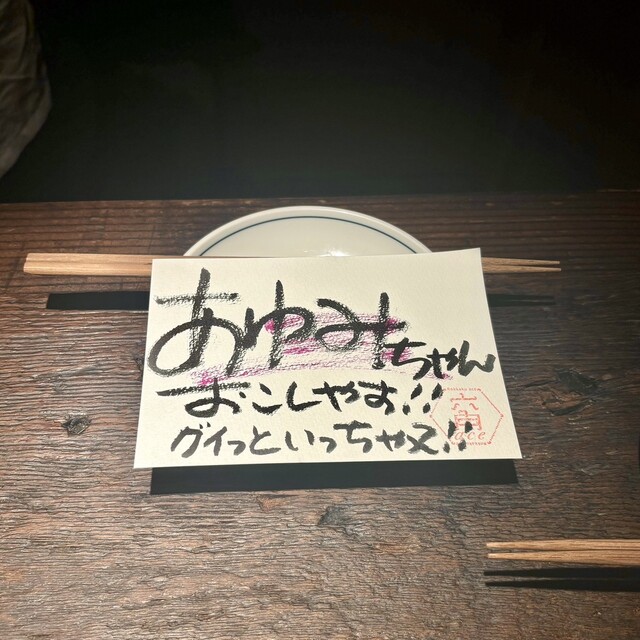 あゆみちゃん
おこしやす!!
グイっといっちゃって!!
六角
ace